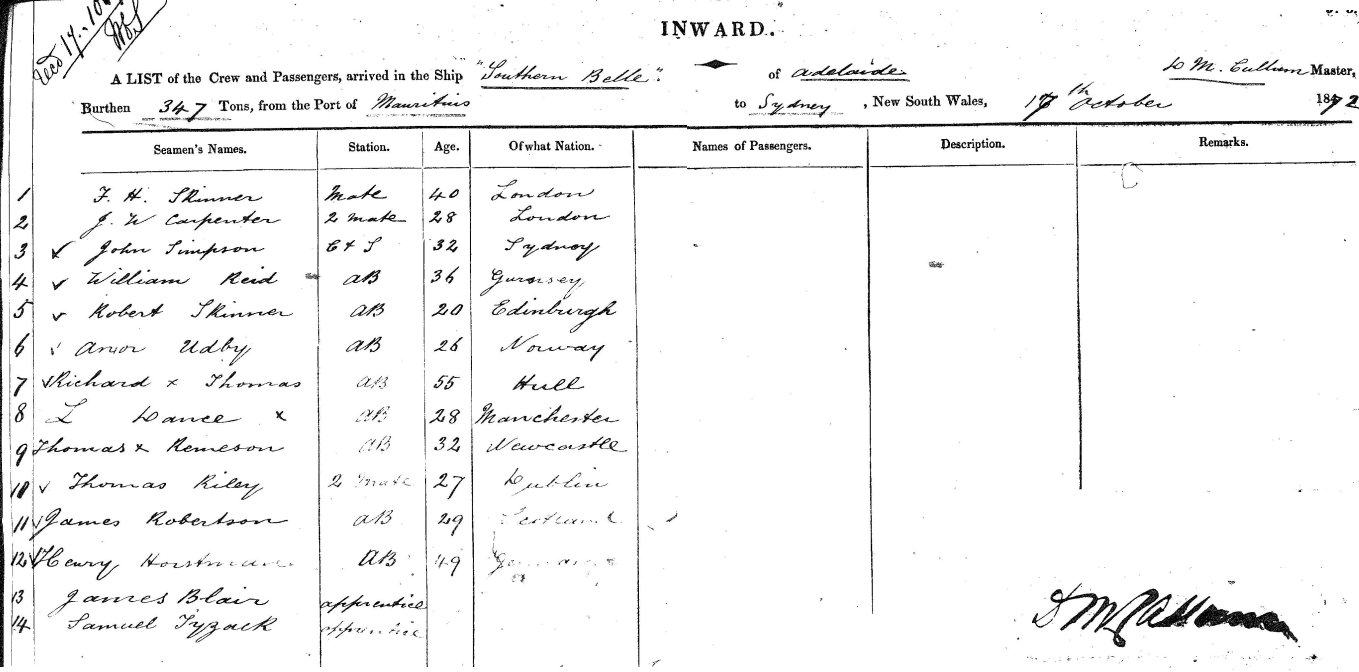 INWARD.
A LIST of the Crew and Passengers, arrived in the Ship "Southern Belle". of Adelaide D McCullum Master,
Burthen 347 Tons, from the Port of Mauritius to Sydney, New South Wales, 17th October 1872
Seamen's Names. Station. Age. Of what Nation. Names of Passengers. Description. Remarks.
1 F. H. Skinner Mate 40 London
2 J. W Carpenter 2 mate 28 London
3 ✓ John Simpson C & S 32 Sydney
4 ✓ William Reid AB 36 Gurnsey
5 ✓ Robert Skinner AB 20 Edinburgh
6 ✓ Udby AB 26 Norway
7 ✓ Richard x Thomas AB 55 Hull
8 L Dance x AB 28 Manchester
9 Thomas x Remeson AB 32 Newcastle
10 ✓ Thomas Riley 2 mate 27 Dublin
11 ✓ James Robertson AB 29 Scotland
12 ✓ Henry Horstman AB 49 Germany
13 James Blair apprentice
14 Samuel Tyzack apprentice
D McCullum